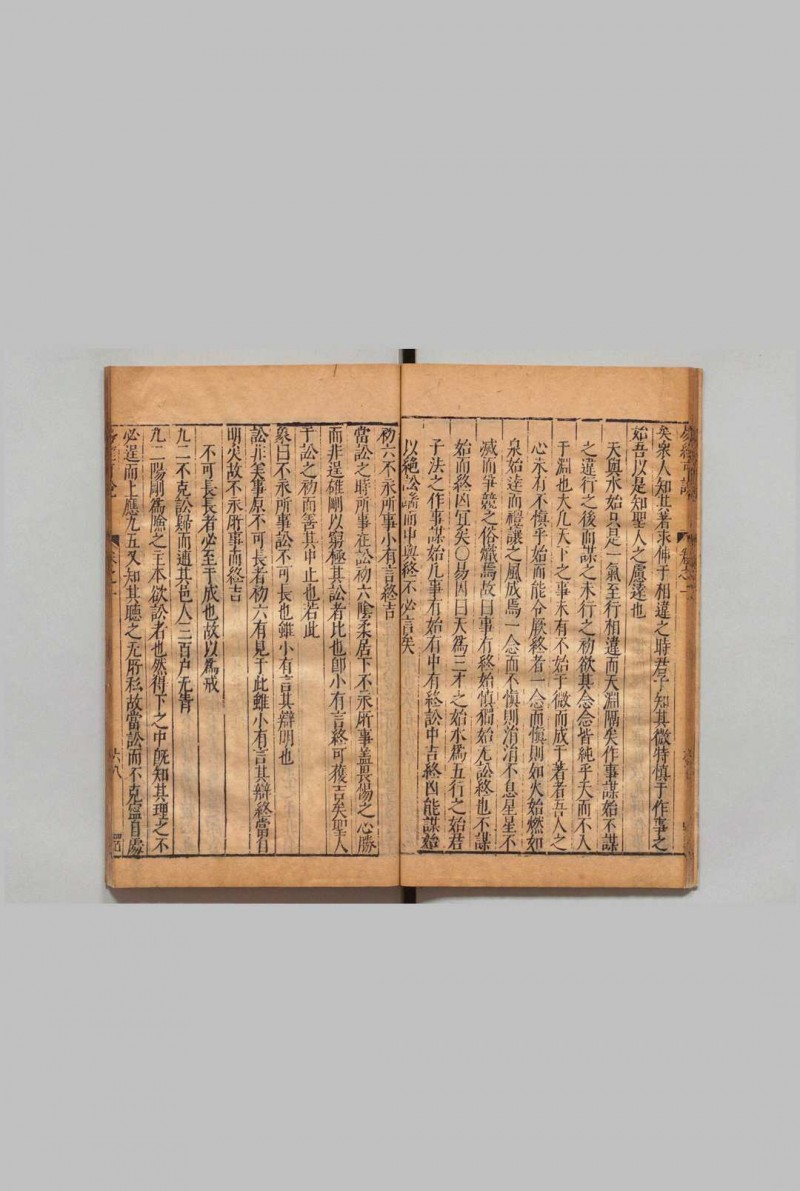 矣衆人知其著求伸于相違之時君子知其微特慎于作事之
始吾以是知聖人之慮遠也
天與水始只是一氣至行相違而天淵隔矣作事謀始不謀
之違行之後而謀之未行之初欲其念念皆純乎天而不入
于淵也大凡天下之事未有不始于微而成于著者吾人之
心未有不慎乎始而能令厥終者一念而慎則如火始燃如
泉始達而禮讓之風成焉一念而不慎則涓涓不息星星不
滅而爭競之俗熾焉故曰事有終始慎獨始无訟終也不謀
始而終凶宜矣○易因曰天爲三才之始水爲五行之始君
子法之作事謀始凡事有始有中有終訟中吉終凶能謀始
以絶訟端而中與終不必言矣
初六不永所事小有言終吉
當訟之時所事在訟初六陰柔居下不永所事蓋畏傷之心勝
而非逞雄剛以窮極其訟者比也卽小有言終可獲吉矣聖人
于訟之初而善其中止也若此
象曰不永所事訟不可長也雖小有言其辯明也
訟非美事原不可長者初六有見于此雖小有言其辯終當自
明矣故不永所事而終吉
不可長長者必至于成也故以爲戒
九二不克訟歸而逋其邑人三百户无眚
九二陽剛爲險之主本欲訟者也然得下之中旣知其理之不
必逞而上應九五又知其聽之无所私故當訟而不克寧自處
六八